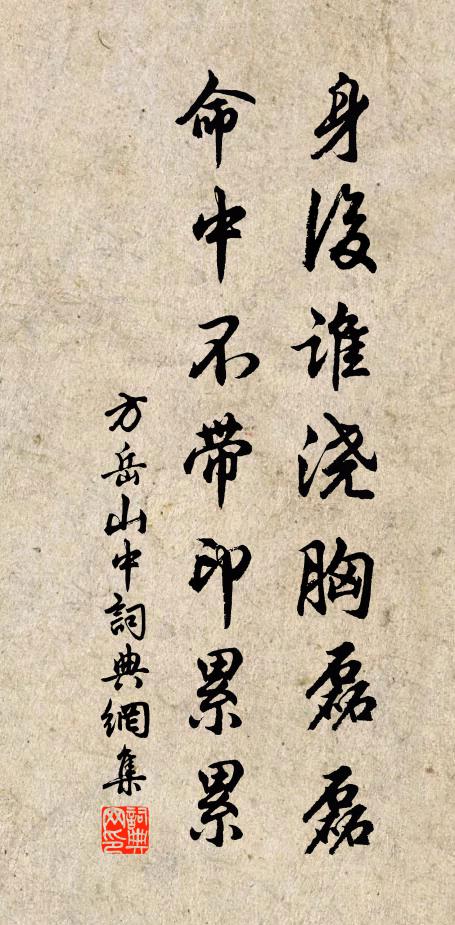 身後谁浇胸磊磊
命中不带印累累
方岳山中詞典網集
詞典网印